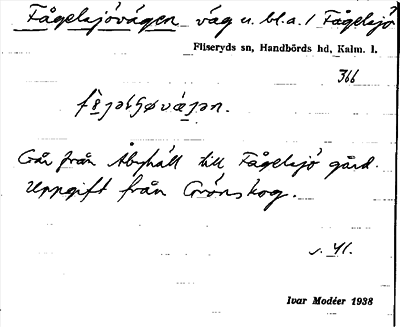 Fågelsjövägen väg u. bl.a. / Fågelsjö
Fliseryds sn, Handbörds hd, Kalm. l.
366
Går från Åbyhåll till Fågelsjö gård.
Uppgift från Grönskog.
s. 41.
Ivar Modéer 1938